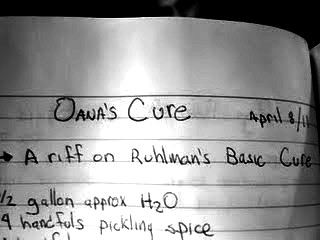 OANA'S CURE
April 8/11
→ A riff on Ruhlman's Basic Cure
1/2 gallon approx H2O
4 handfuls pickling spice